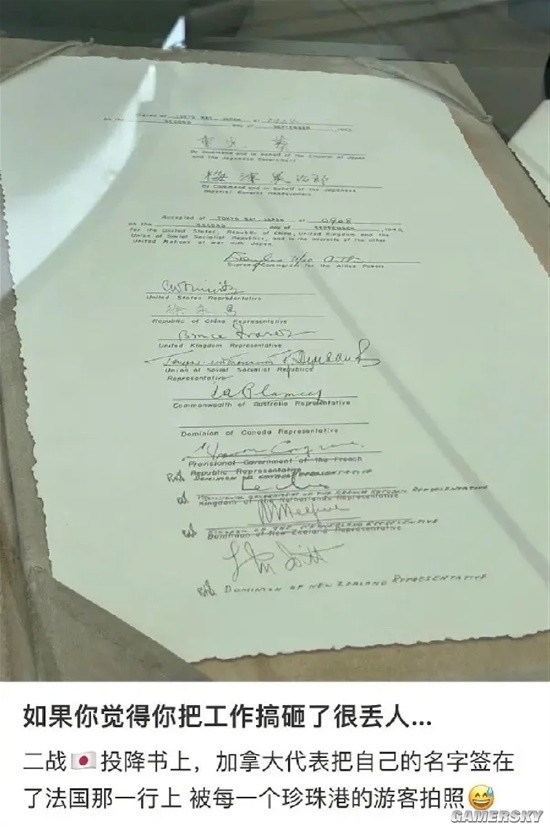 TOKYO BAY, JAPAN
SECOND day of SEPTEMBER, 1945
重光 葵
By Command and in behalf of the Emperor of Japan
and the Japanese Government
梅津美治郎
By Command and in behalf of the Japanese
Imperial General Headquarters
Accepted at TOKYO BAY, JAPAN at 0908
on the SECOND day of SEPTEMBER, 1945,
for the United States, Republic of China, United Kingdom and the
Union of Soviet Socialist Republics, and in the interests of the other
United Nations at war with Japan.
Supreme Commander for the Allied Powers
United States Representative
Republic of China Representative
Bruce Fraser
United Kingdom Representative
Union of Soviet Socialist Republics
Representative
Commonwealth of Australia Representative
Dominion of Canada Representative
Provisional Government of the French
Republic Representative
DOMINION OF CANADA REPRESENTATIVE
Kingdom of the Netherlands Representative
Dominion of New Zealand Representative
DOMINION OF NEW ZEALAND REPRESENTATIVE
如果你觉得你把工作搞砸了很丢人...
二战🇯🇵投降书上，加拿大代表把自己的名字签在
了法国那一行上 被每一个珍珠港的游客拍照😅
GAMERSKY